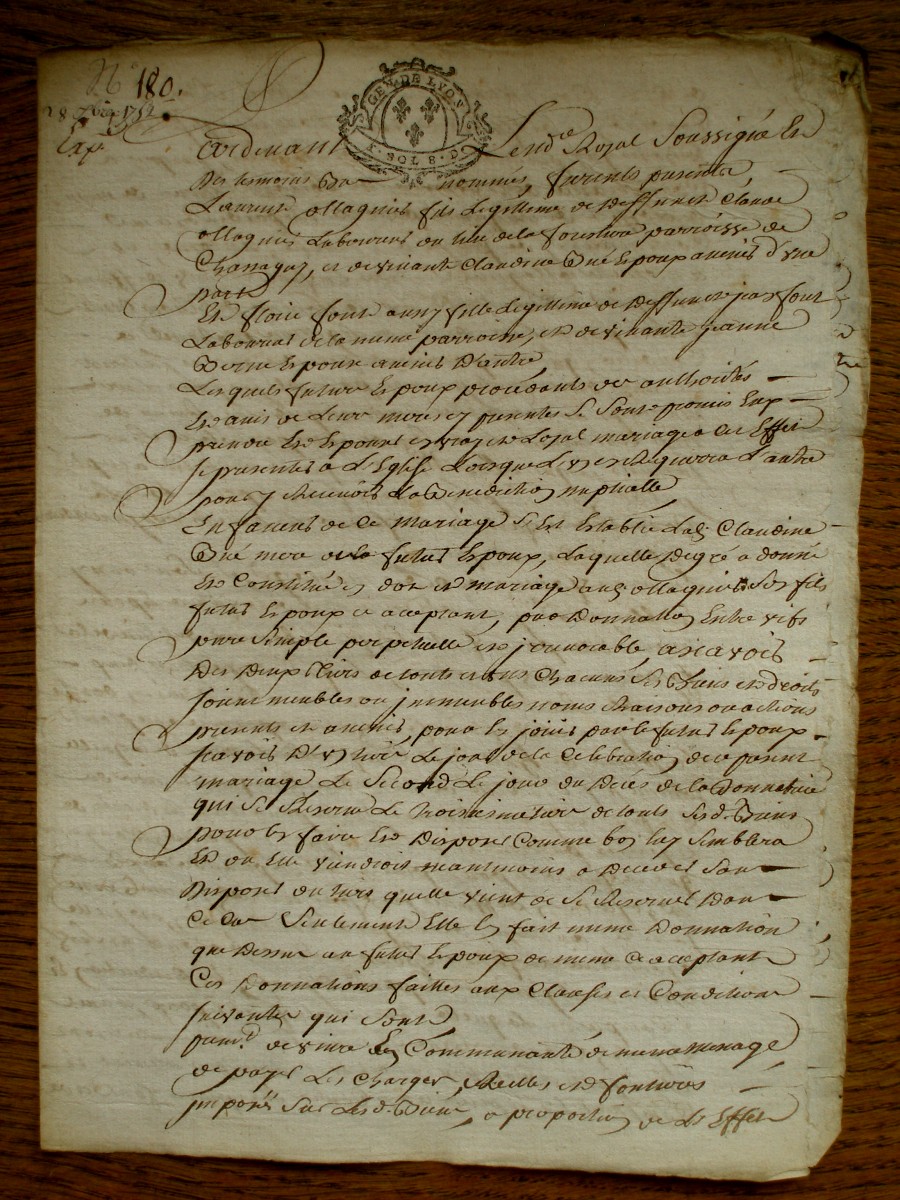 N° 180.
28 7bre 1752
Exp.
GEN. DE LYON
SOLS
Pardevant Le no.re Royal Soussigné Et
Des tesmoins Bas nommés, furents presents
Laurent Magnin fils Legittime de Deffunct Claude
Magnin Laboureur du lieu de la parroisse de
et de vivante Claudine Epoux avenir d'une
part
Et fleurie font avny fille Legittime de Deffunct jean font
Laboureur de la meme parroisse, et de vivante jeanne
Epouse avenir D'autre
Lesquels futurs Epoux procedants des authorités
Et avis de Leurs meres cy presentes Se Sont promis Eux
prendre Et Epouser en vray et Loyal mariage a Cet Effet
Se presenter a L'Eglise Lorsque L'un En Requerra L'autre
pour y Recevoir La Benediction nuptialle
En faveur de Ce mariage S'est Establie Lad. Claudine
mere du futur Epoux, Laquelle De gré a donné
Et Constitué en dot et mariage aud. Magnin Son fils
futur Epoux ce acceptant, par Donnation Entre vifs
pure Simple perpetuelle et jrrevocable, ascavoir
Des Deux tiers de touts et uns Chacuns Ses Biens et Droits
soient meubles ou jmmeubles noms Raisons ou actions
presents et avenir, pour en jouir par le futur Epoux
scavoir D'un tiers Le jour de la Celebration de ce present
mariage Le Second Le jour du Décès de la Donnatrice
qui Se Reserve Le troisieme tiers de touts Sesd. Biens
pour En faire Et Disposer Comme bon luy Semblera
Et ou Elle viendroit neantmoins a Deceder Sans
Disposer du tiers quelle vient de Se Reserver Dans
Ce Cas Seulement Elle En fait meme Donnation
que Dessus au futur Epoux de meme Ce acceptant
Ces Donnations faittes aux Clauses et Conditions
suivantes qui Sont
de vivre En Communauté de meme menage
de payer Les Charges, Reelles et fontieres
jmposés Sur Lesd. Biens, a proportion de Cet Effet